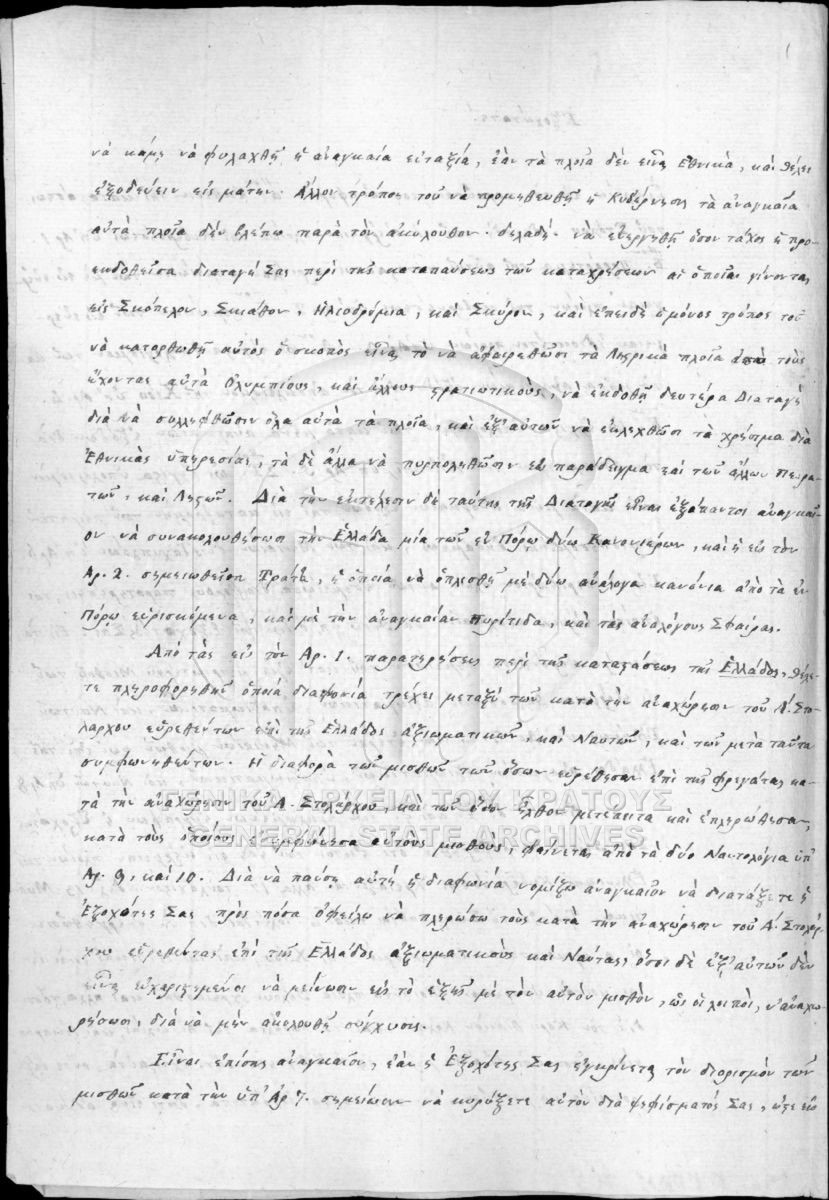 νὰ κάμῃ νὰ φυλαχθῇ ἡ ἀναγκαία εὐταξία, ἐὰν τὰ πλοῖα δὲν εἶναι Ἐθνικὰ, καὶ θέλει
ἐξοδεύειν εἰς μάτην. Ἄλλον τρόπον τοῦ νὰ προμηθευθῇ ἡ Κυβέρνησις τὰ ἀναγκαῖα
αὐτὰ πλοῖα δὲν βλέπω παρὰ τὸν ἀκόλουθον. δηλαδὴ. νὰ ἐνεργηθῇ ὅσον τάχος ἡ προ-
εκδοθεῖσα διαταγή Σας περὶ τῆς καταπαύσεως τῶν καταχρήσεων αἱ ὁποῖαι γίνονται
εἰς Σκόπελον, Σκιάθον, Ηλιοδρόμια, καὶ Σκύρον, καὶ ἐπειδὴ ὁ μόνος τρόπος τοῦ
νὰ κατορθωθῇ αὐτὸς ὁ σκοπὸς εἶναι τὸ νὰ ἀφαιρεθῶσι τὰ Ληστρικὰ πλοῖα ἀπὸ τοὺς
ἔχοντας αὐτὰ Ολυμπίους, καὶ ἄλλους στρατιωτικοὺς, νὰ ἐκδοθῇ δευτέρα Διαταγὴ
διὰ νὰ συλληφθῶσιν ὅλα αὐτὰ τὰ πλοῖα, καὶ ἐξ' αὐτῶν νὰ ἐκλεχθῶσι τὰ χρήσιμα διὰ
Ἐθνικὰς ὑπηρεσίας, τὰ δὲ ἄλλα νὰ πυρποληθῶσιν εἰς παράδειγμα καὶ τῶν ἄλλων Πειρα-
τῶν, καὶ Ληστῶν. Διὰ τὴν ἐκτέλεσιν δὲ ταύτης τῆς Διαταγῆς εἶναι ἐξάπαντος ἀναγκαῖ-
ον νὰ συνακολουθήσωσι τὴν Ἑλλάδα μία τῶν ἐν Πόρῳ δύω Κανονιέρων, καὶ ἡ εἰς τὸν
Αρ. 2. σημειωθεῖσα Τράτα, ἡ ὁποία νὰ ὁπλισθῇ μὲ δύω ἀνάλογα κανόνια ἀπὸ τὰ ἐν
Πόρῳ εὑρισκόμενα, καὶ μὲ τὴν ἀναγκαίαν Πυρίτιδα, καὶ τὰς ἀναλόγους Σφαίρας.
Ἀπὸ τὰς εἰς τὸν Αρ. 1. παρατηρήσεις περὶ τῆς καταστάσεως τῆς Ἑλλάδος, θέλε-
τε πληροφορηθῇ ὁποία διαφωνία τρέχει μεταξὺ τῶν κατὰ τὴν ἀναχώρησιν τοῦ Α. Στο-
λάρχου εὑρεθέντων ἐπὶ τῆς Ἑλλάδος ἀξιωματικῶν, καὶ Ναυτῶν, καὶ τῶν μετὰ ταῦτα
συμφωνηθέντων. Ἡ διαφορὰ τῶν μισθῶν τῶν ὅσων εὑρέθησαν ἐπὶ τῆς φρεγάτας κα-
τὰ τὴν ἀναχώρησιν τοῦ Α. Στολάρχου, καὶ τῶν ὅσοι ἦλθον μετέπειτα καὶ ἐπληρώθησαν,
κατὰ τοὺς ὁποίους ἐσυμφώνησα αὐτοὺς μισθοὺς, φαίνεται ἀπὸ τὰ δύο Ναυτολόγια ὑπ'
Αρ. 9, καὶ 10. Διὰ νὰ παύσῃ αὐτὴ ἡ διαφωνία νομίζω ἀναγκαῖον νὰ διατάξετε ἡ
Ἐξοχότης Σας πρὸς πόσα ὀφείλω νὰ πληρώσω τοὺς κατὰ τὴν ἀναχώρησιν τοῦ Α. Στολάρ-
χου εὑρεθέντας ἐπὶ τῆς Ἑλλάδος ἀξιωματικοὺς καὶ Ναύτας, ὅσοι δὲ ἐξ' αὐτῶν δὲν
εἶναι εὐχαριστημένοι νὰ μείνωσιν εἰς τὸ ἑξῆς μὲ τὸν αὐτὸν μισθὸν, ὡς οἱ λοιποὶ, ν' ἀναχω-
ρήσωσι, διὰ νὰ μὴν ἀκολουθῇ σύγχυσις.
Εἶναι ἐπίσης ἀναγκαῖον, ἐὰν ἡ Ἐξοχότης Σας ἐγκρίνεται τὸν διορισμὸν τῶν
μισθῶν κατὰ τὴν ὑπ' Αρ 7. σημείωσιν νὰ κηρύξετε αὐτὸν διὰ ψηφίσματός Σας, ὥστε εἰς
ΓΕΝΙΚΑ ΑΡΧΕΙΑ ΤΟΥ ΚΡΑΤΟΥΣ
GENERAL STATE ARCHIVES